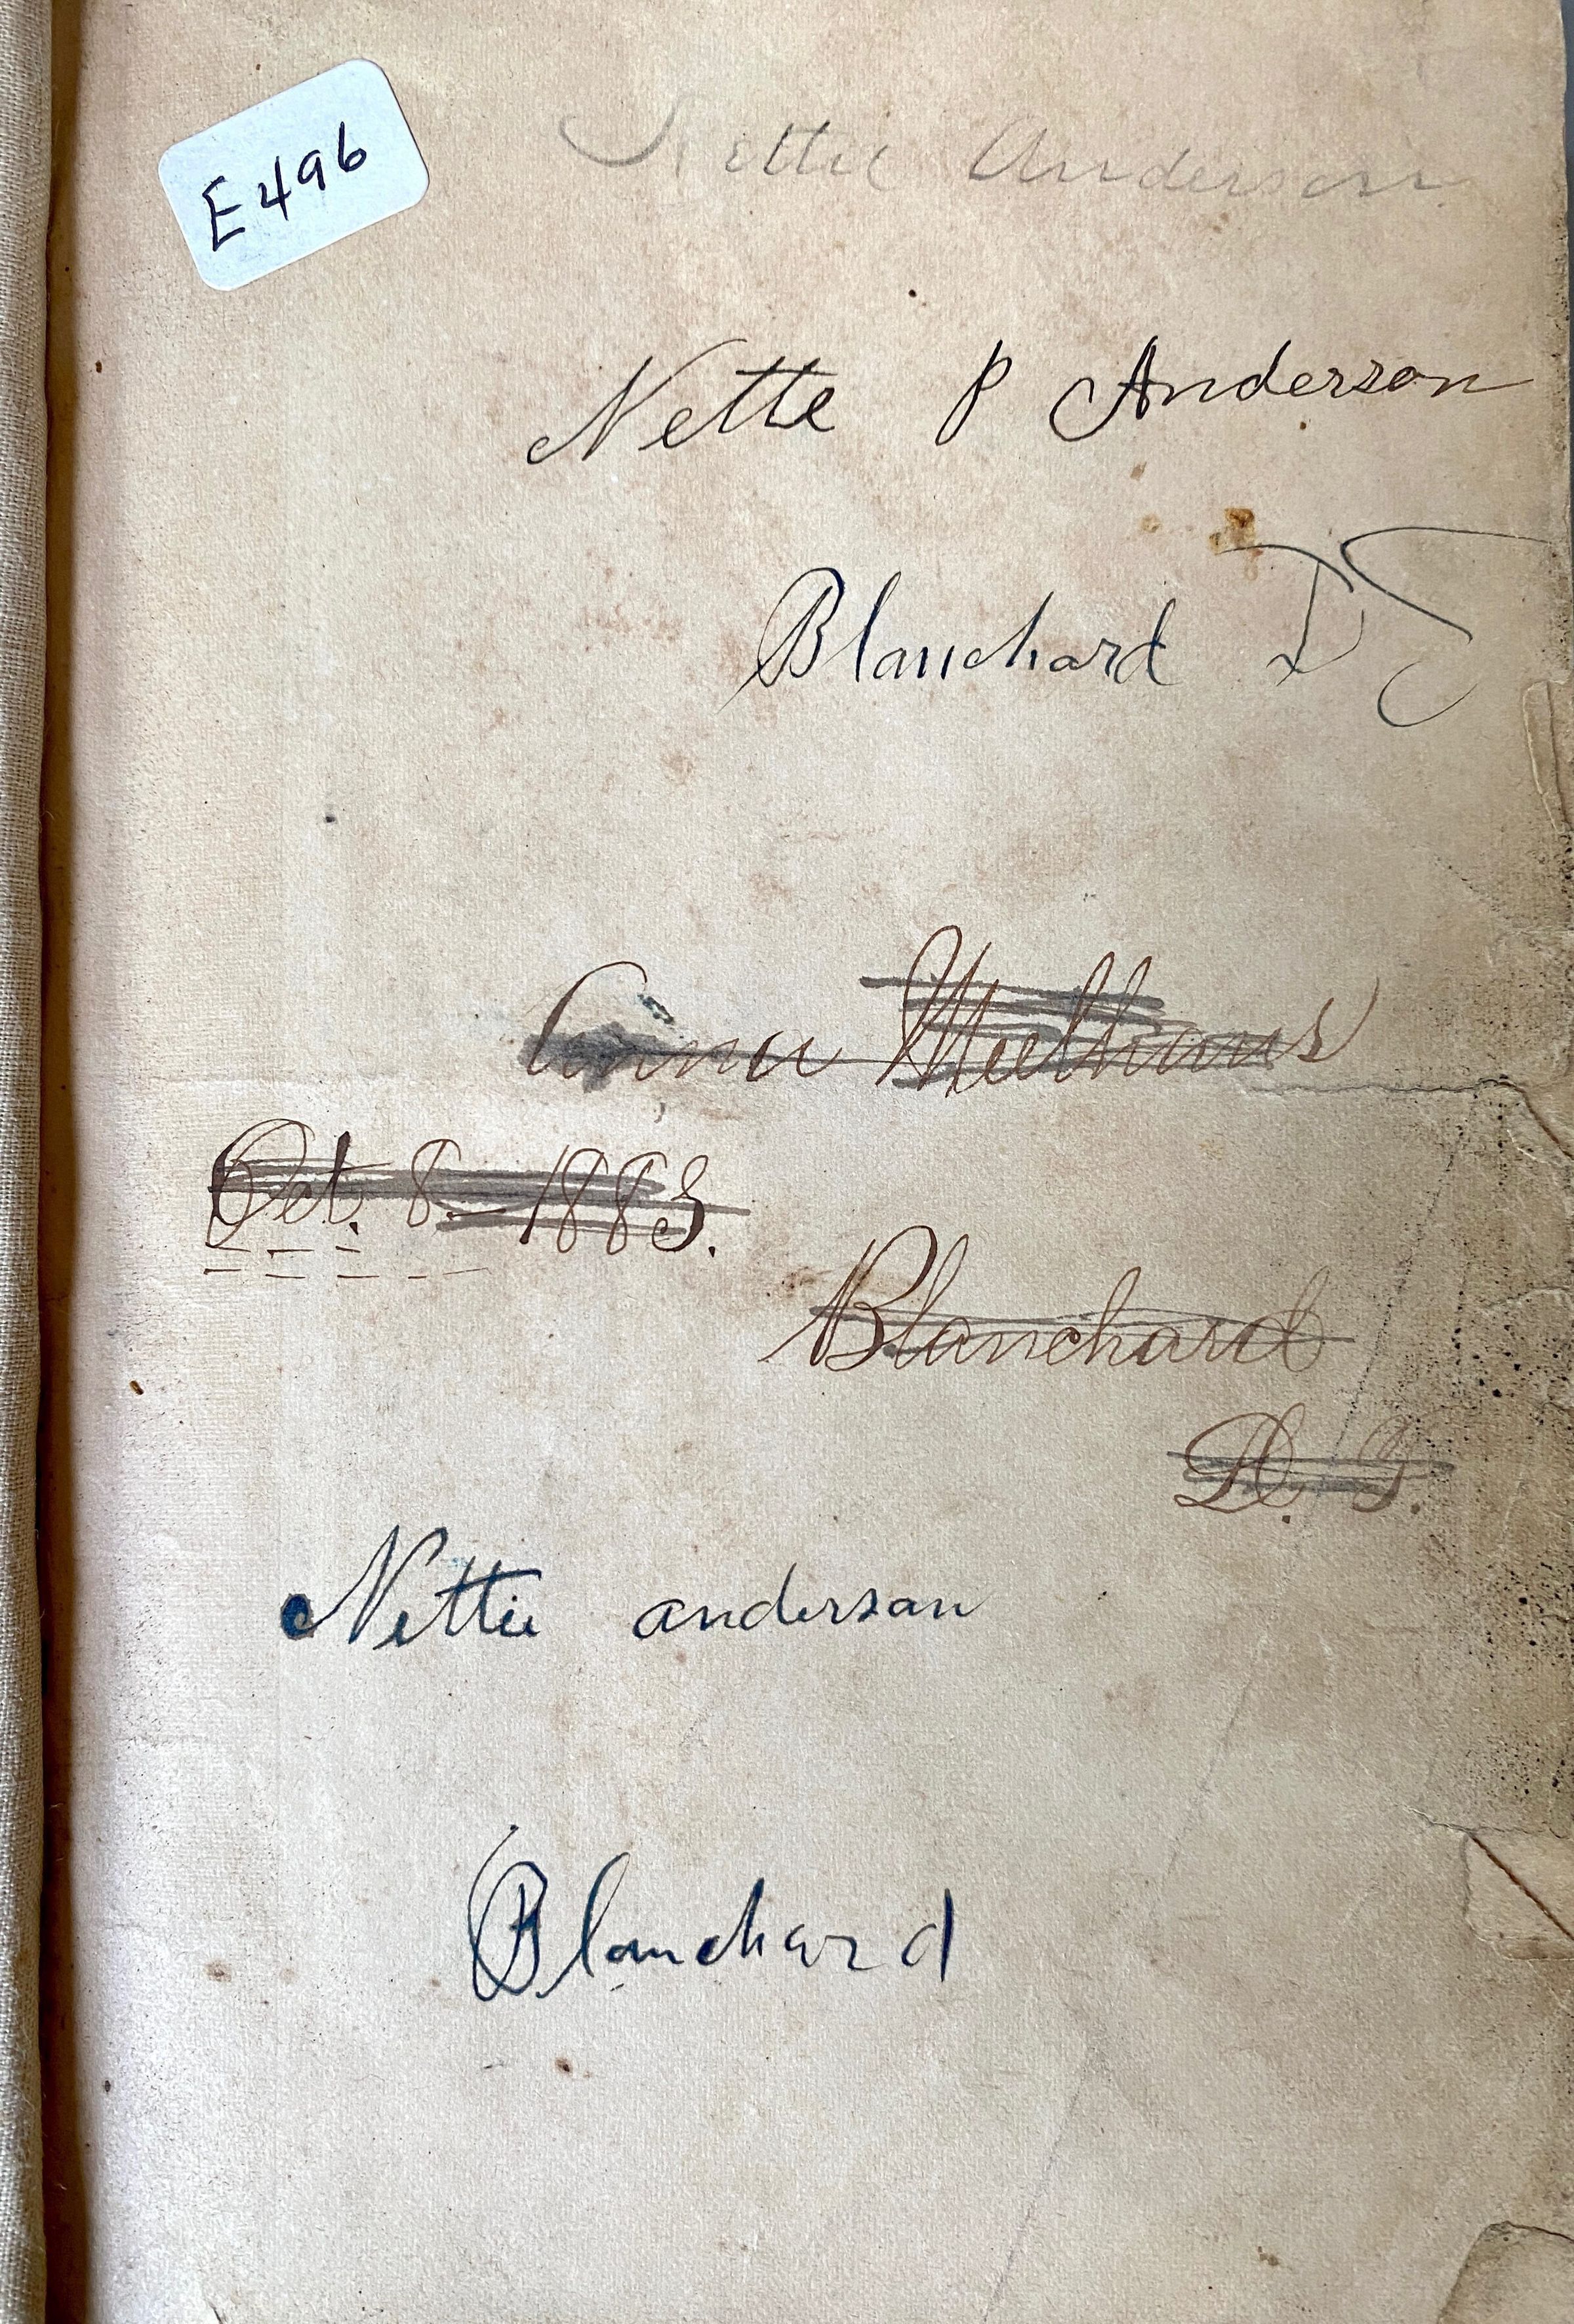 E496
Nettie Anderson
Nette P Anderson
Blanchard DT
Anna
Oct. 8 - 1883.
Blanchard
D. T.
Nettie anderson
Blanchard